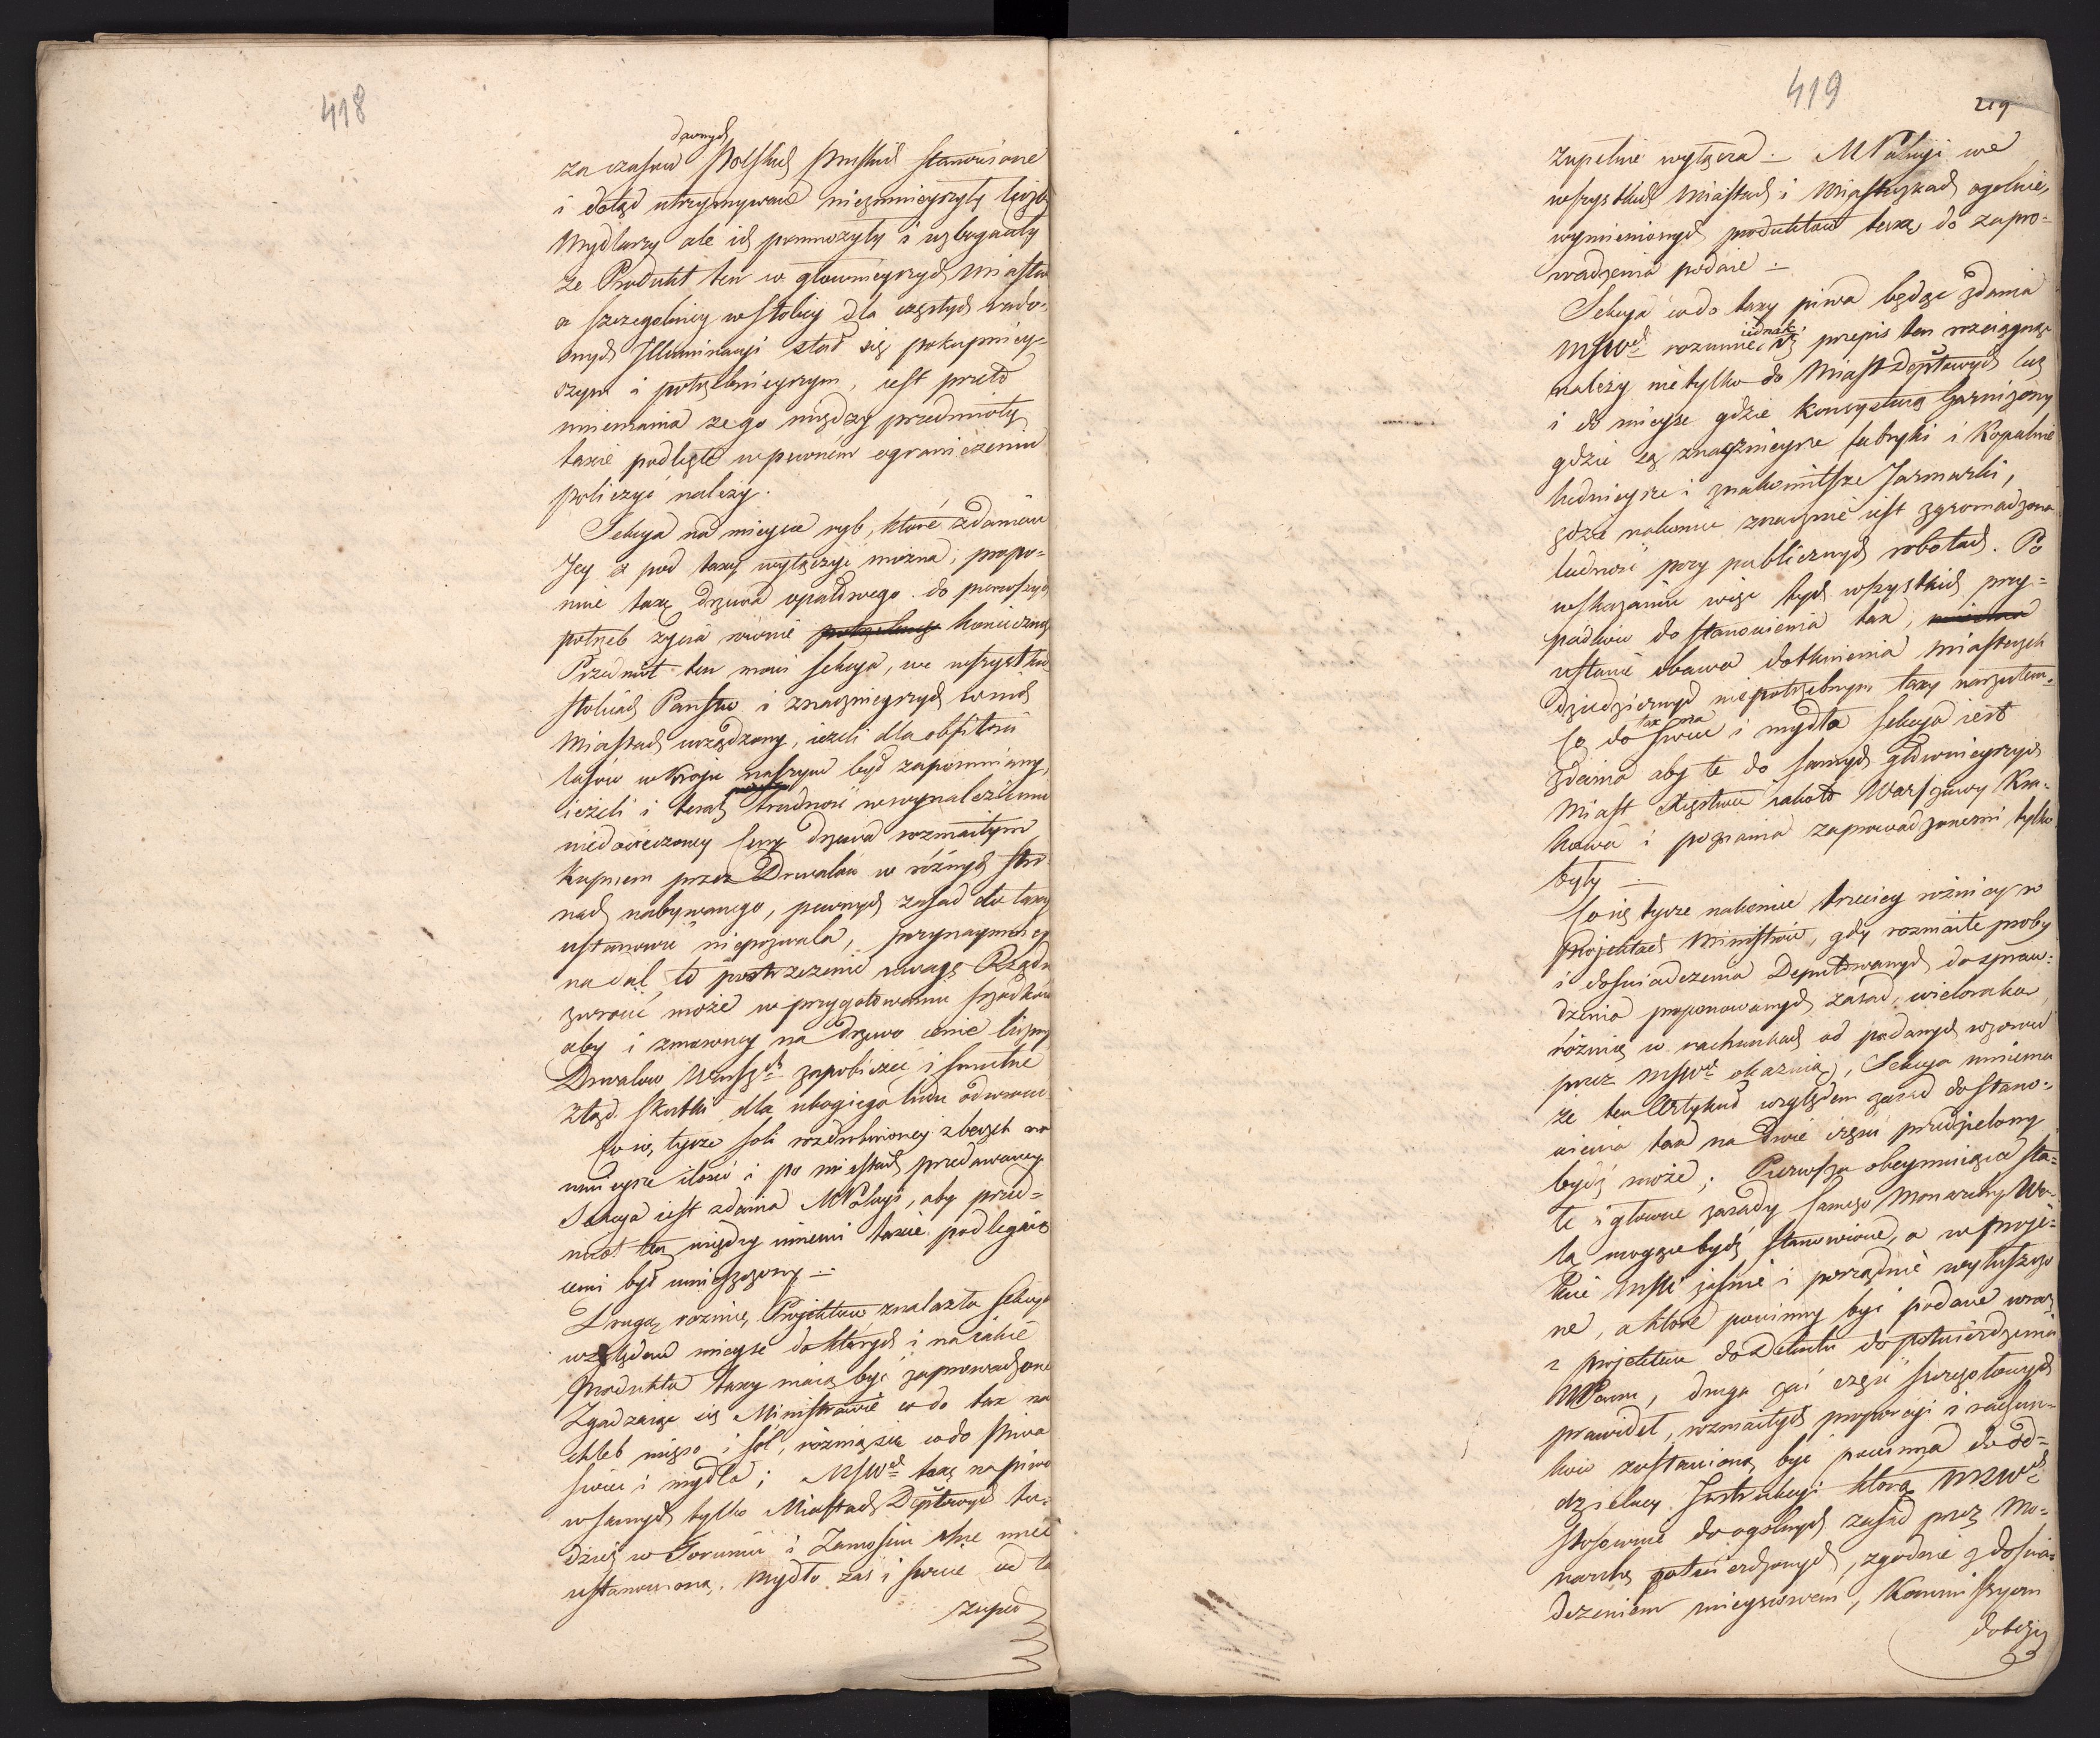 418
dawnych
za czasów Polskich Pruskich stanowione
i dotąd utrzymywane niezmnieyszyły liczby
Mydlarzy ale ich pomnożyły i wzbogaciły
że Produkt ten w głownieyszych miastach
a szczegolniey w stolicy dla częstych rado-
snych Illuminacyi stał się pokupniey-
szym i potrzebnieyszym, iest przeto
mniemania że go między przedmioty
taxie podległe w pewném ograniczeniu
policzyć należy.
Sekcya na mieysce ryb, które zdaniem
Jey z pod taxy wyłączyć można, propo-
nuie taxę drzewa opałowego. do pierwszych
potrzeb życia rownie koniecznego
Przedmiot ten mowi Sekcya, we wszystkich
stolicach Państw i znacznieyszych w nich
Miastach urządzony, ieżeli dla obfitości
lasów w Kraju naszym był zapomniany,
ieżeli i teraz trudność w wynalezieniu
niedowieczoney ceny drzewa rozmaitym
kupnem przez Drwalów w różnych stro-
nach nabywanego, pewnych zasad do taxy
ustanowić niepozwala, przynaymniey
nadal to postrzeżenie uwagę Rządu
zwrocić może w przygotowaniu srzodków
aby i zmowney na drzewo cenie liczny
Drwalow Warszch zapobiedz i smutne
ztąd skutki dla ubogiego ludu odwrocić
Co się tycze soli rozdrobnioney z beczek na
mnieysze ilości i po miastach przedawaney
Sekcya iest zdania MPolicyi, aby przed-
miot ten między innemi taxie podlegaią-
cemi był umieszczony.
Drugą roznicę Projektów znalazła Sekcya
względem mieysc do których i na iakie
produkta taxy maią być zaprowadzone
Zgadzaiąc się Ministrowie co do tax na
chleb mięso i sól, rożnią się co do Piwa
swiec i mydła; MSWch taxę na piwo
w samych tylko Miastach Deptowych tu-
dzież w Toruniu i Zamościu chce mieć
ustanowioną. Mydło zaś i swiece od tax
zupeł
419
219
zupełnie wyłącza. MPolicyi we
wszystkich Miastach i Miasteczkach ogolnie,
wymienionych produktow taxę do zapro-
wadzenia podaie.
Sekcya co do taxy piwa będąc zdania
MSWch rozumie iednak iż przepis ten rozciągnąć
należy nietylko do Miast Deptowych lecz
i do mieysc gdzie konsystuią Garnizony
gdzie są znacznieysze fabryki i Kopalnie
ludnieysze i znakomitsze Jarmarki,
gdzie nakoniec znacznie iest zgromadzona
ludność przy publicznych robotach. Po
wskazaniu więc tych wszystkich przy-
padkow do stanowienia tax,
ustanie obawa dotknienia Miasteczek
Dziedzicznych niepotrzebnym taxy narzutem.
Co do tax na swiece i mydła Sekcya iest
zdania aby te do samych głównieyszych
Miast Xięstwa iakoto Warszawy Kra-
kowa i poznania zaprowadzonemi tylko
były
Co się tycze nakoniec trzeciey różnicy w
Projektach Ministrów, gdy rozmaite proby
i doświadczenia Deputowanych do spraw-
dzenia proponowanych zasad, wieloraką
różnicę w rachunkach od podanych wzorów
przez MSWch okazuią, Sekcya mniema
że ten Artykuł względem zasad do stano-
wienia tax na dwie części przedzielony
bydź może; Pierwsza obeymuiąca sta-
łe i głowne zasady samego Monarchy Wo-
lą mogące bydź stanowione, a w proje-
kcie MSW jaśnie i porządnie wyłuszczo
ne, a które powinny być podane wraz
z projektem do Dekretu do potwierdzenia
NPanu, druga zaś część szczegołowych
prawideł, rozmaitych proporcyi i rachun-
kow zostawioną być powinna do od-
dzielney Instrukcyi którą MSWch
stosownie do ogolnych zasad przez Mo-
narchę potwierdzonych, zgodnie z doświa-
dczeniem mieyscowem, Kommissyom
dobrze